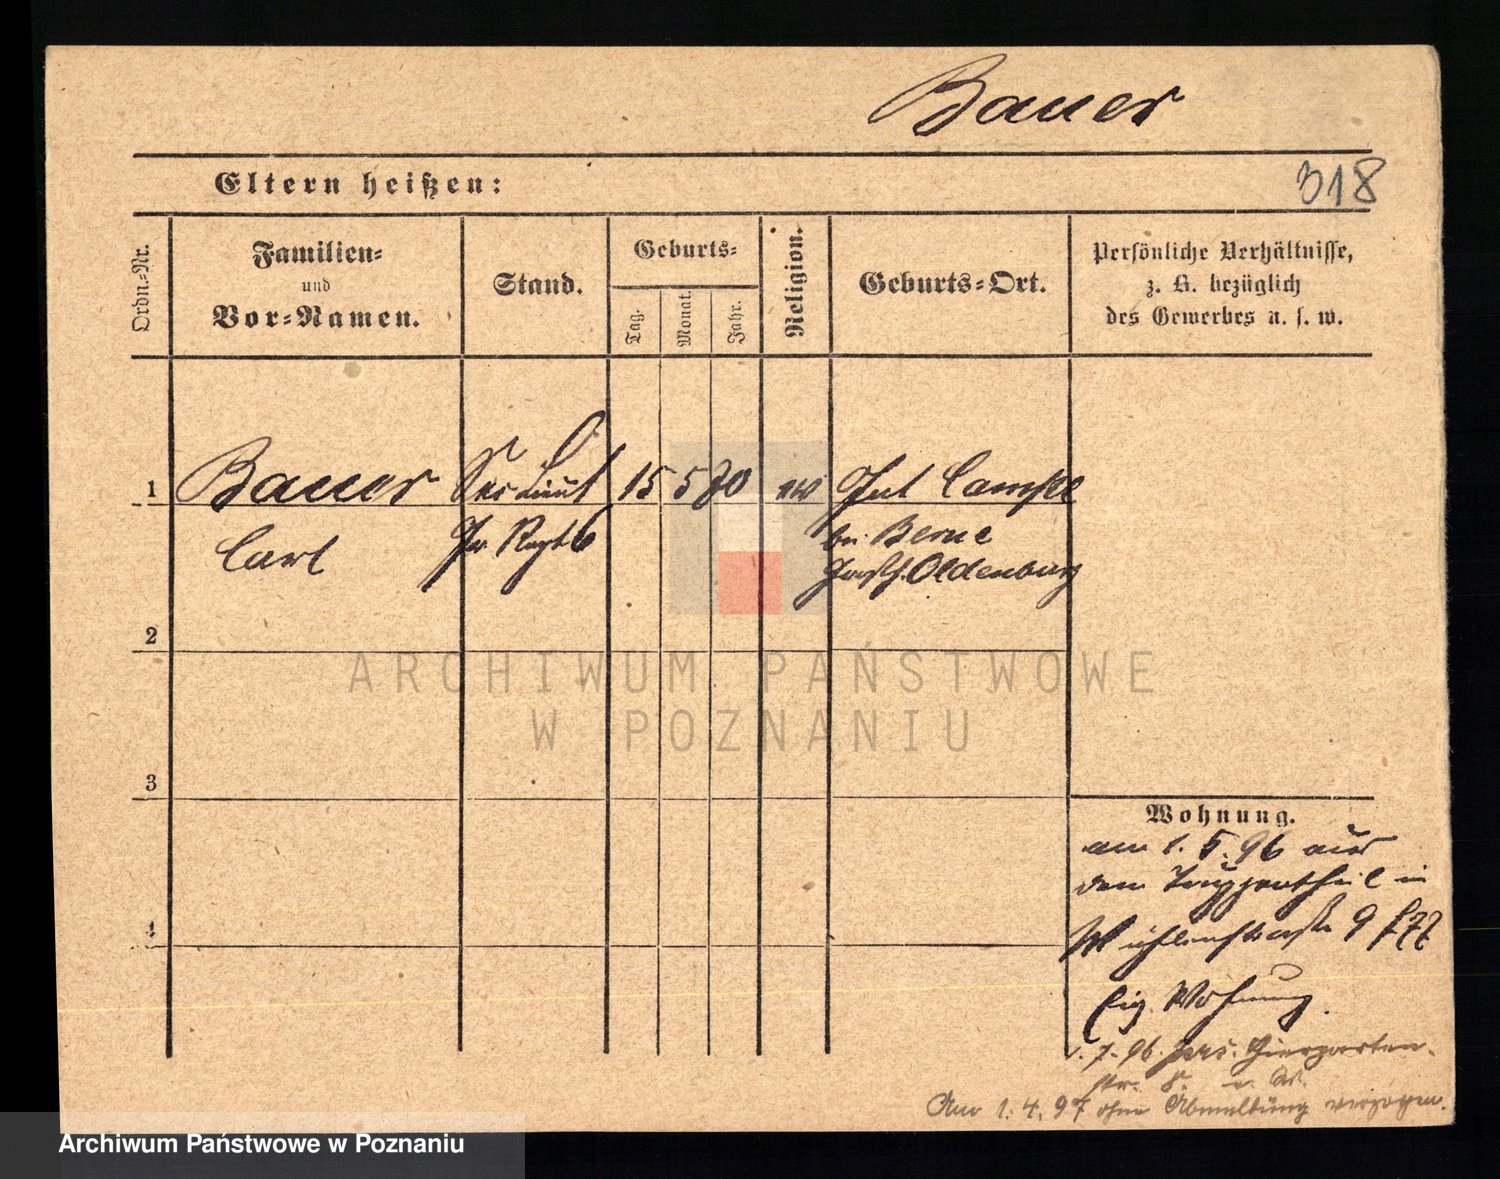 Bauer
Eltern heißen:
318
Ordn.-Nr.
Familien-
und
Vor-Namen.
Stand.
Geburts-
Tag.
Monat.
Jahr.
Religion.
Geburts-Ort.
Persönliche Verhältnisse,
z. B. bezüglich
des Gewerbes u. s. w.
1
Bauer
Carl
Sec Lieut
Gr. Regt 6
15
5
70
ev
Gut Campe
bei Berne
Großh. Oldenburg
2
ARCHIWUM PAŃSTWOWE
W POZNANIU
3
4
Wohnung.
am 1. 5. 96 aus
dem Truppentheil in
Mühlenstraße 9
Eig. Wohnung.
7. 96. Thiergarten-
str. 8.
Am 1. 4. 97 ohne Abmeldung verzogen.
Archiwum Państwowe w Poznaniu